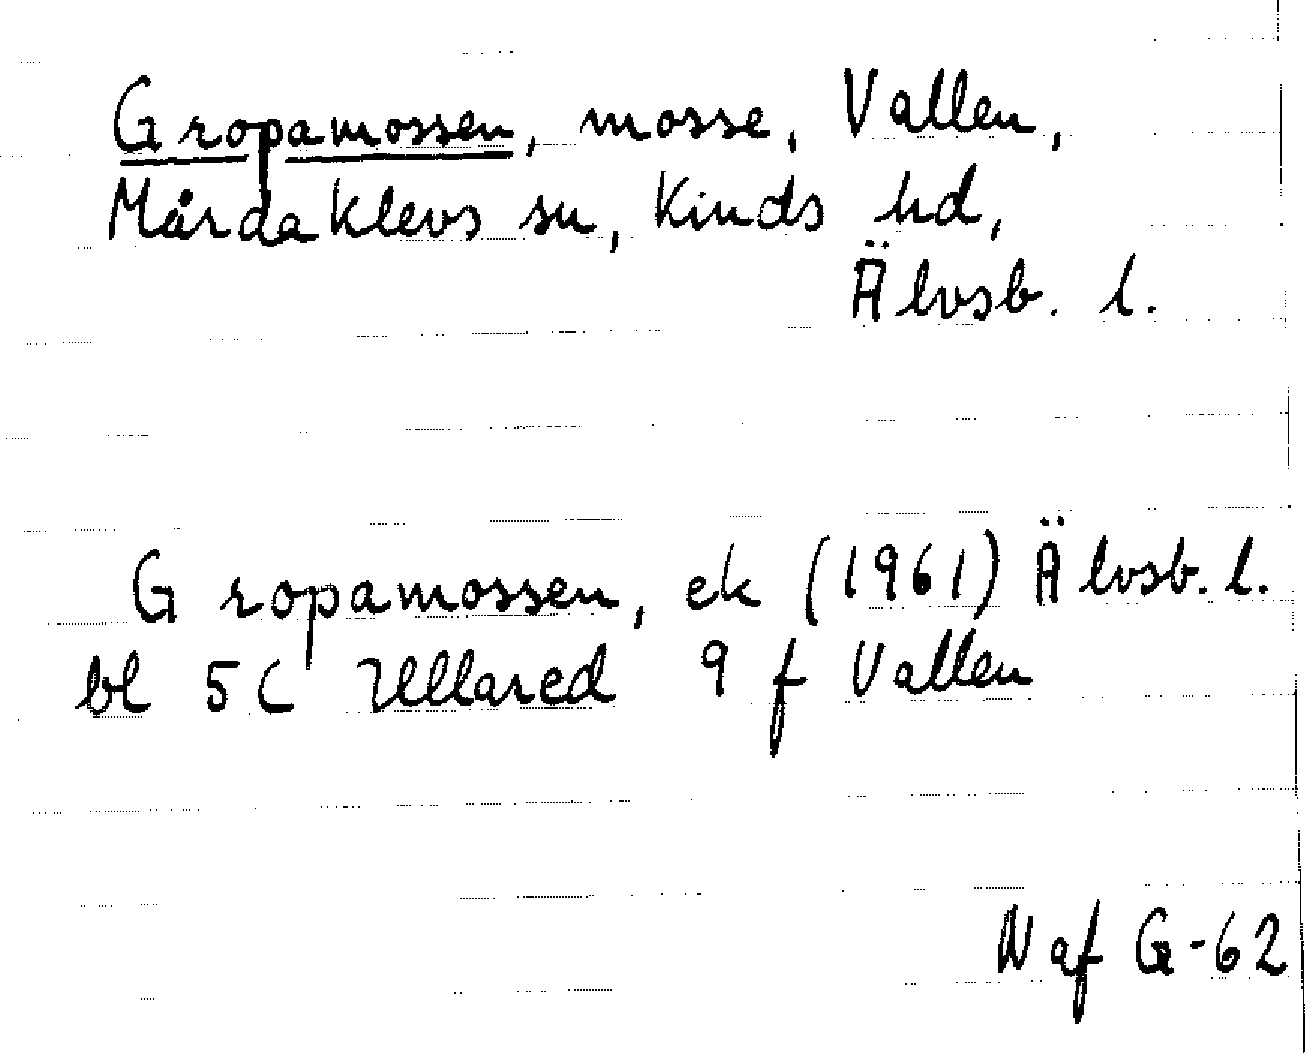 Gropamossen, mosse, Vallen,
Mårdaklevs sn, Kinds hd,
Älvsb. l.
Gropamossen, ek (1961) Älvsb. l.
bl 5C Ullared 9f Vallen
N af G-62